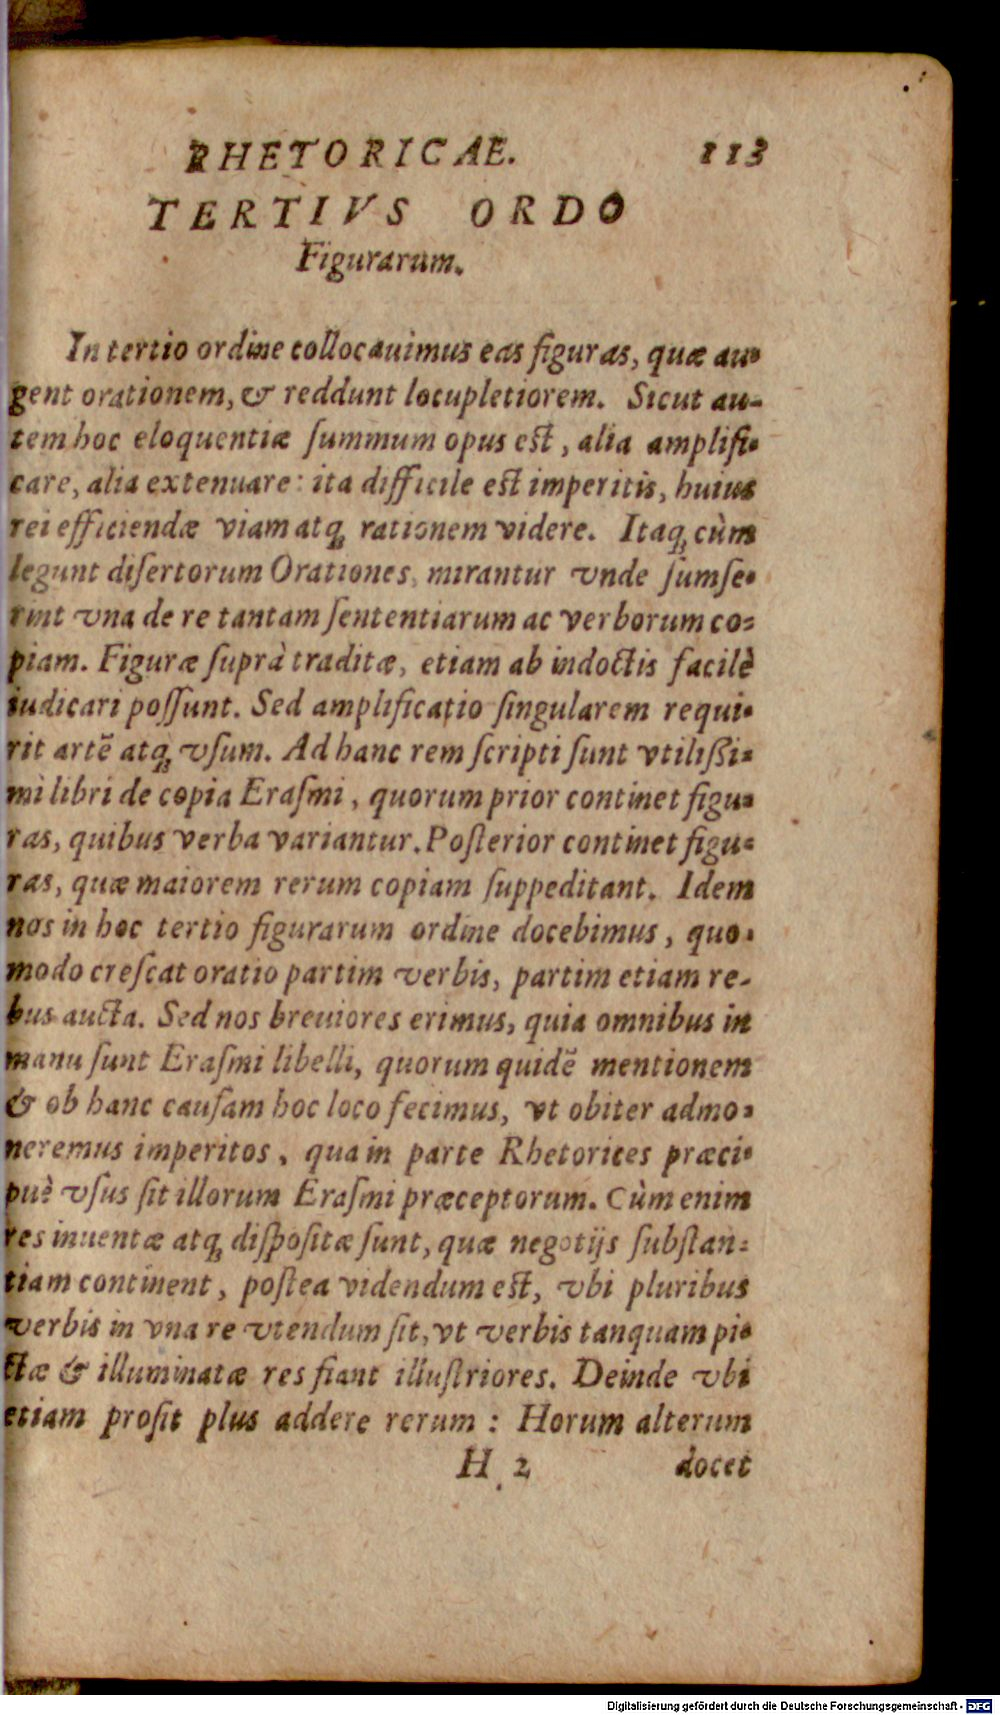 RHETORICAE. 113
TERTIVS ORDO
Figurarum.
In tertio ordine collocauimus eas figuras, quæ au-
gent orationem, & reddunt locupletiorem. Sicut au-
tem hoc eloquentiæ ſummum opus eſt, alia amplifi-
care, alia extenuare: ita difficile eſt imperitis, huius
rei efficiendæ viam atq́ꝫ rationem videre. Itaq́ꝫ cùm
legunt diſertorum Orationes, mirantur vnde ſumſe-
rint vna de re tantam ſententiarum ac verborum co-
piam. Figuræ ſuprà traditæ, etiam ab indoctis facilè
iudicari poſſunt. Sed amplificatio ſingularem requi-
rit artē atq́ꝫ vſum. Ad hanc rem ſcripti ſunt vtiliſsi-
mi libri de copia Eraſmi, quorum prior continet figu-
ras, quibus verba variantur. Poſterior continet figu-
ras, quæ maiorem rerum copiam ſuppeditant. Idem
nos in hoc tertio figurarum ordine docebimus, quo-
modo creſcat oratio partim verbis, partim etiam re-
bus aucta. Sed nos breuiores erimus, quia omnibus in
manu ſunt Eraſmi libelli, quorum quidē mentionem
& ob hanc cauſam hoc loco fecimus, vt obiter admo-
neremus imperitos, qua in parte Rhetorices præci-
puè vſus ſit illorum Eraſmi præceptorum. Cùm enim
res inuentæ atq́ꝫ diſpoſitæ ſunt, quæ negotijs ſubſtan-
tiam continent, poſtea videndum eſt, vbi pluribus
verbis in vna re vtendum ſit, vt verbis tanquam pi-
ctæ & illuminatæ res fiant illuſtriores. Deinde vbi
etiam proſit plus addere rerum: Horum alterum
H 2 docet
Digitalisierung gefördert durch die Deutsche Forschungsgemeinschaft - DFG